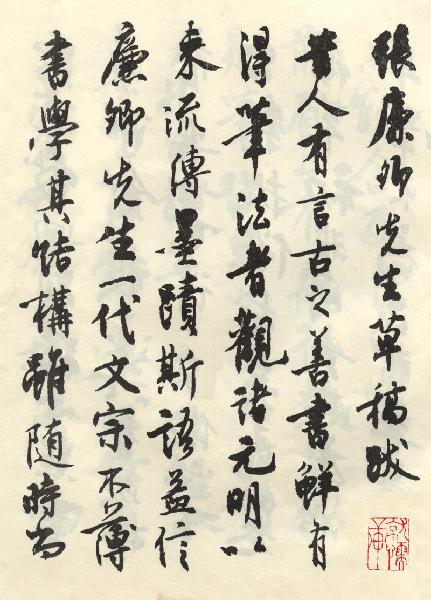 張廉卿先生草稿跋
昔人有言古之善書鮮有
得筆法者觀諸元明以
來流傳墨蹟斯語益信
廉卿先生一代文宗不薄
書學其結構雖隨時尚